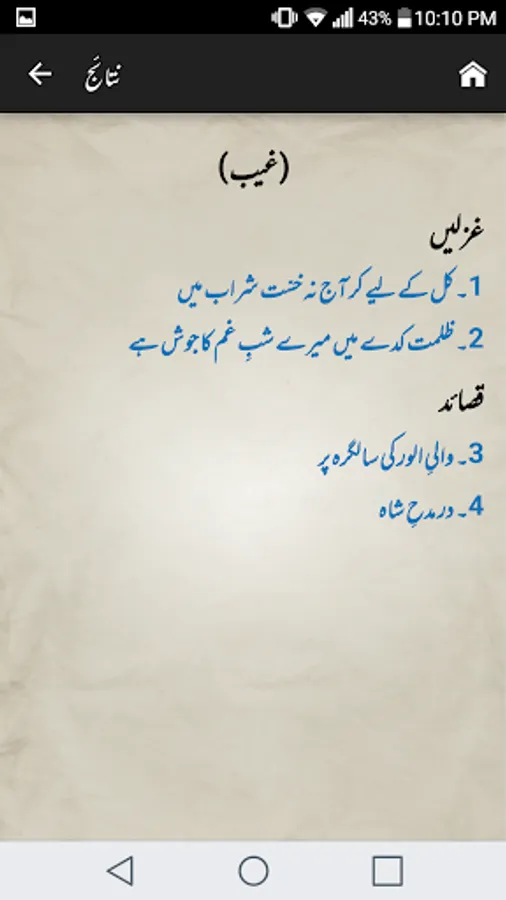 43% 10:10 PM
نتائج
(غیب)
غزلیں
1۔ کل کے لیے کر آج نہ خسّت شراب میں
2۔ ظلمت کدے میں میرے شبِ غم کا جوش ہے
قصائد
3۔ والیِ الور کی سالگرہ پر
4۔ در مدحِ شاہ